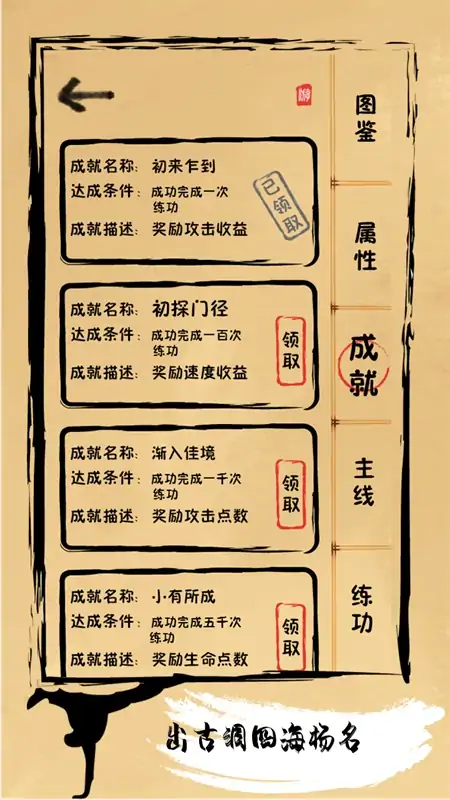 图鉴
属性
成就
主线
练功
成就名称: 初来乍到
达成条件: 成功完成一次
练功
成就描述: 奖励攻击收益
已领取
成就名称: 初探门径
达成条件: 成功完成一百次
练功
成就描述: 奖励速度收益
领取
成就名称: 渐入佳境
达成条件: 成功完成一千次
练功
成就描述: 奖励攻击点数
领取
成就名称: 小有所成
达成条件: 成功完成五千次
练功
成就描述: 奖励生命点数
领取
出古洞四海扬名